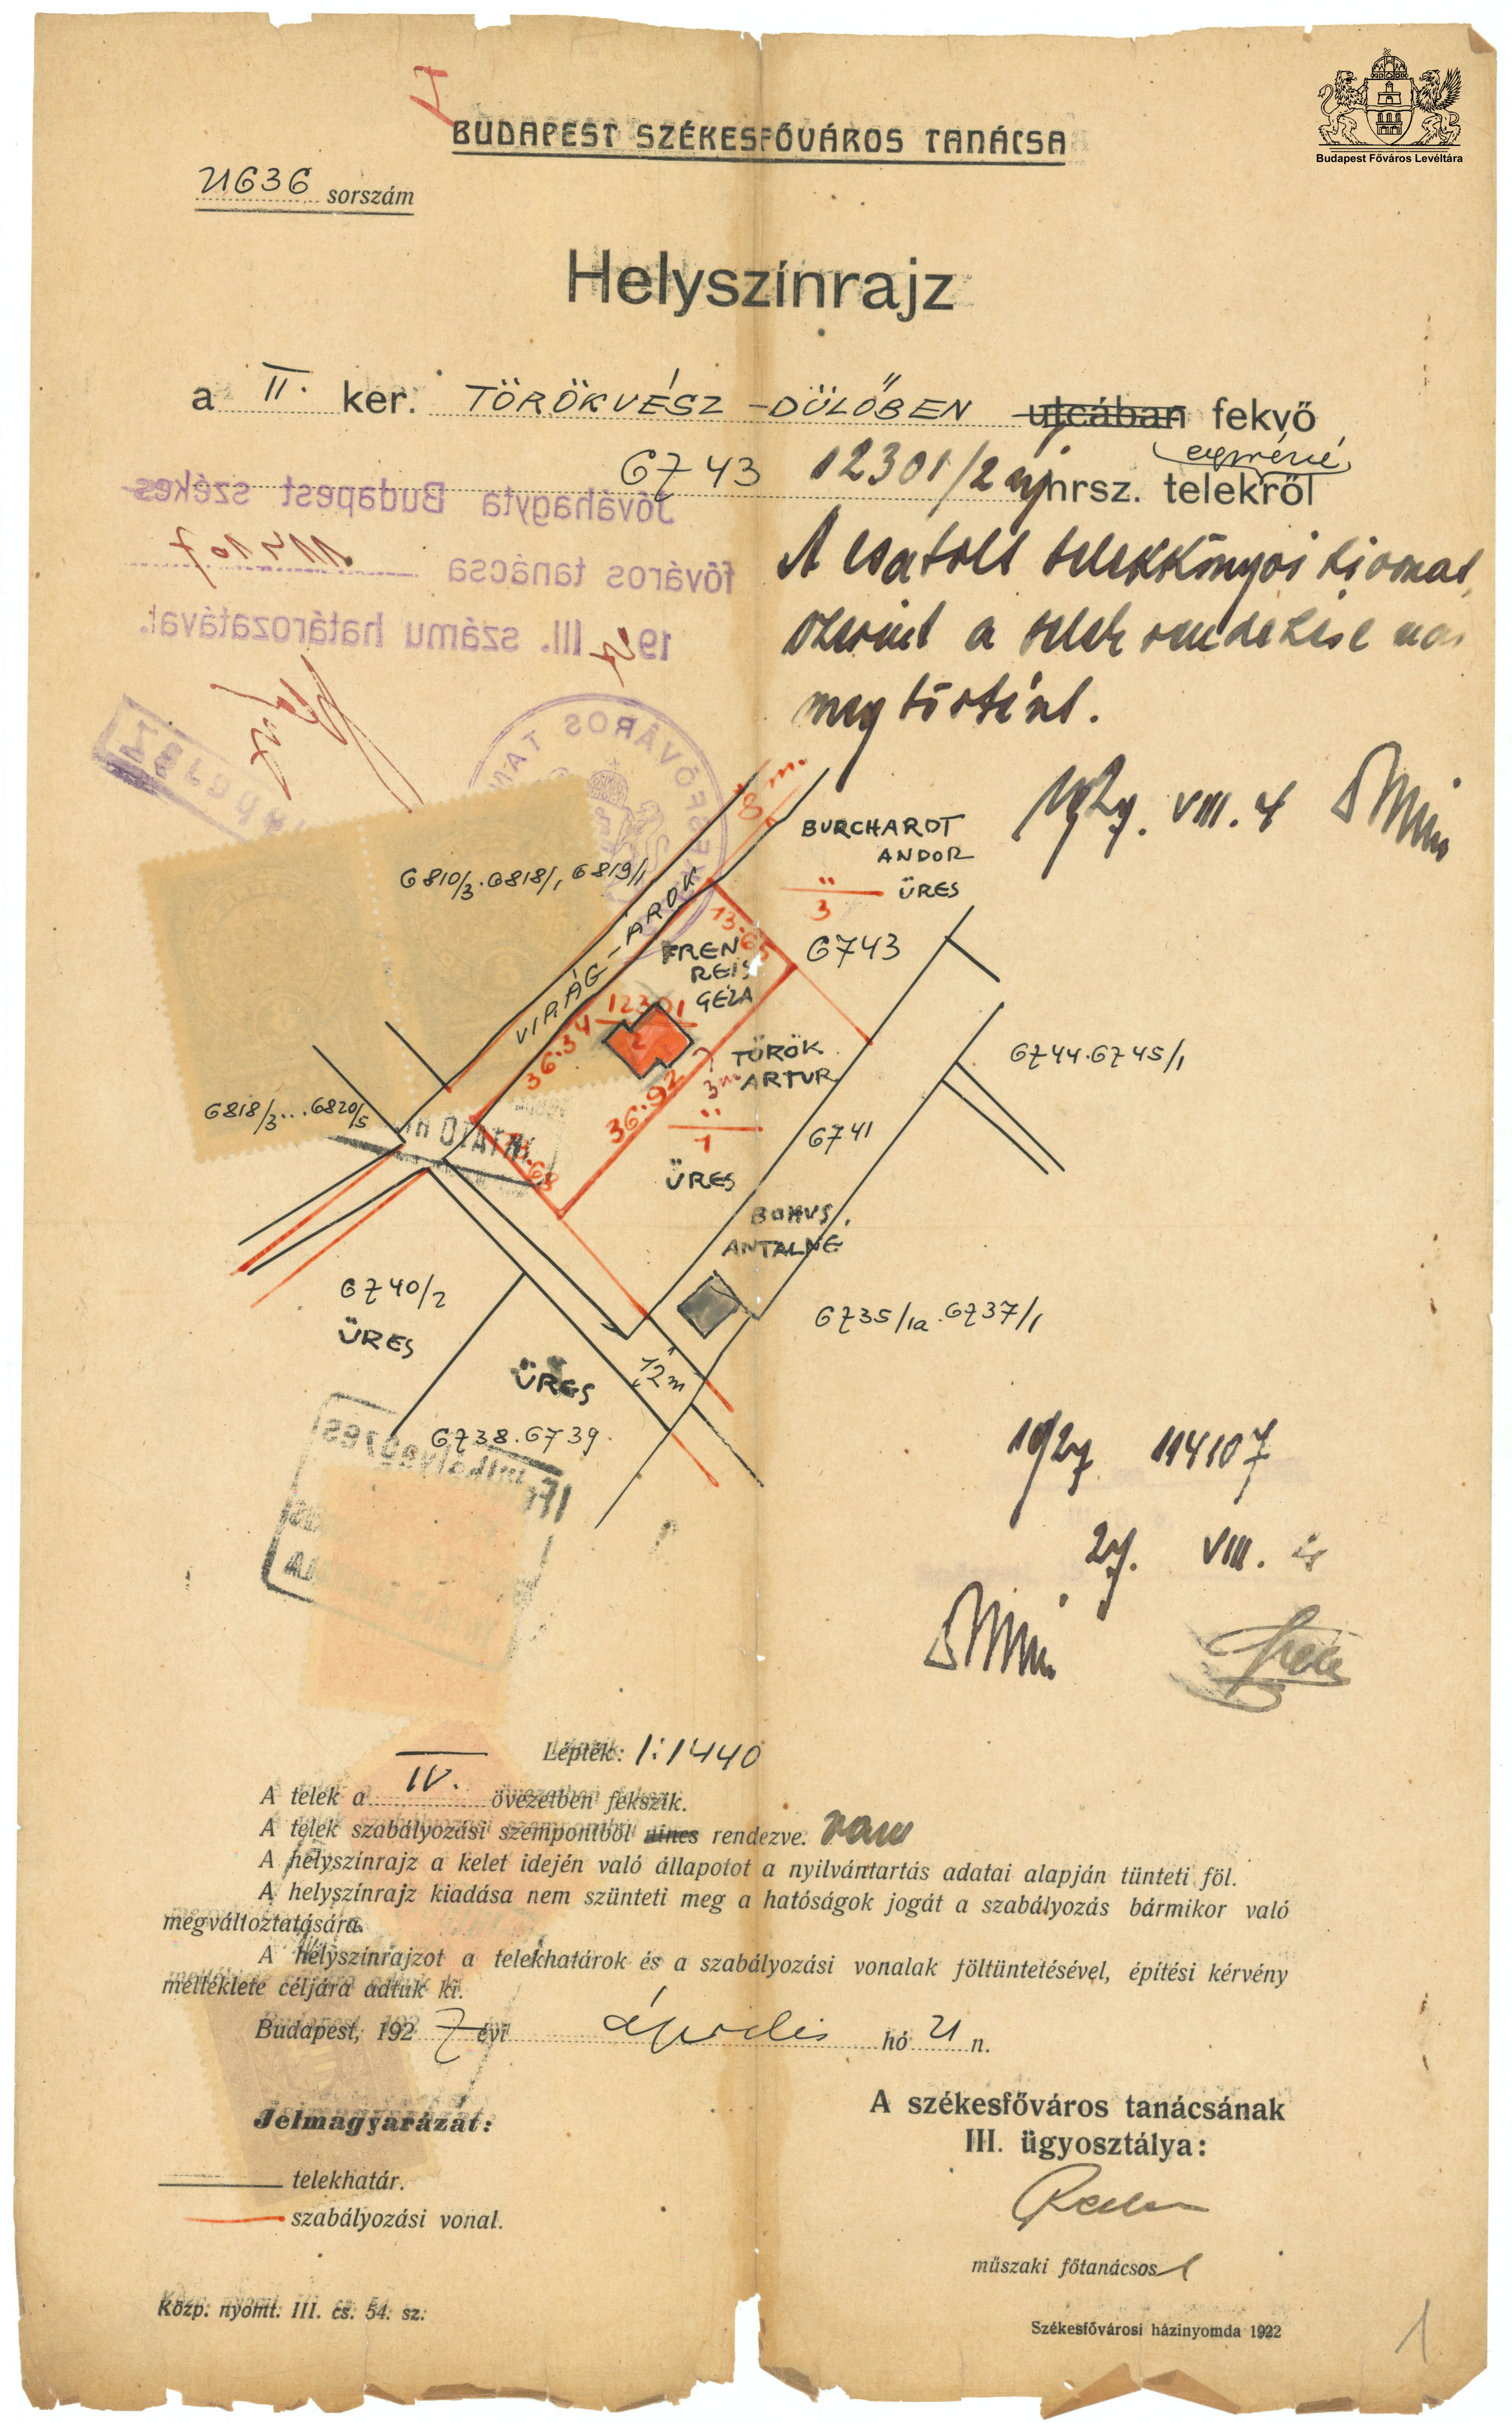 Budapest Főváros Levéltára
BUDAPEST SZÉKESFŐVÁROS TANÁCSA
21636 sorszám
Helyszínrajz
a II. ker. TÖRÖKVÉSZ-DÜLŐBEN utcában fekvő
6743 12301/2 új hrsz. telekről
Jóváhagyta Budapest székes-
főváros tanácsa 114107
1927 III. számu határozatával.
A csatolt telekkönyvi kivonat
szerint a telek rendezése
megtörtént.
1927. VIII. 4
8 m.
BURCHARDT
ANDOR
3 ÜRES
6810/3. 6818/1, 6819/1
VIRÁG-ÁROK
13.65
FREN
REIS
GÉZA
6743
12301
2
36.34
36.92
3m
TÖRÖK
ARTUR
1
ÜRES
6744. 6745/1
6818/3... 6820/5
6741
BOHUS
ANTALNÉ
6740/2
ÜRES
6735/1a. 6737/1
12 m
ÜRES
6738. 6739.
1927 114107
27. VIII.
Lépték: 1:1440
A telek a IV. övezetben fekszik.
A telek szabályozási szempontból nincs rendezve. van
A helyszínrajz a kelet idején való állapotot a nyilvántartás adatai alapján tünteti föl.
A helyszínrajz kiadása nem szünteti meg a hatóságok jogát a szabályozás bármikor való
megváltoztatására.
A helyszínrajzot a telekhatárok és a szabályozási vonalak föltüntetésével, építési kérvény
melléklete céljára adtuk ki.
Budapest, 1927 évi április hó 21 n.
Jelmagyarázat:
telekhatár.
szabályozási vonal.
A székesfőváros tanácsának
III. ügyosztálya:
műszaki főtanácsos
Közp. nyomt. III. cs. 54. sz.
Székesfővárosi házinyomda 1922
1